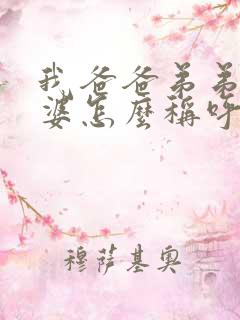 我爸爸弟弟
婆怎麼稱呼
穆薩基奧